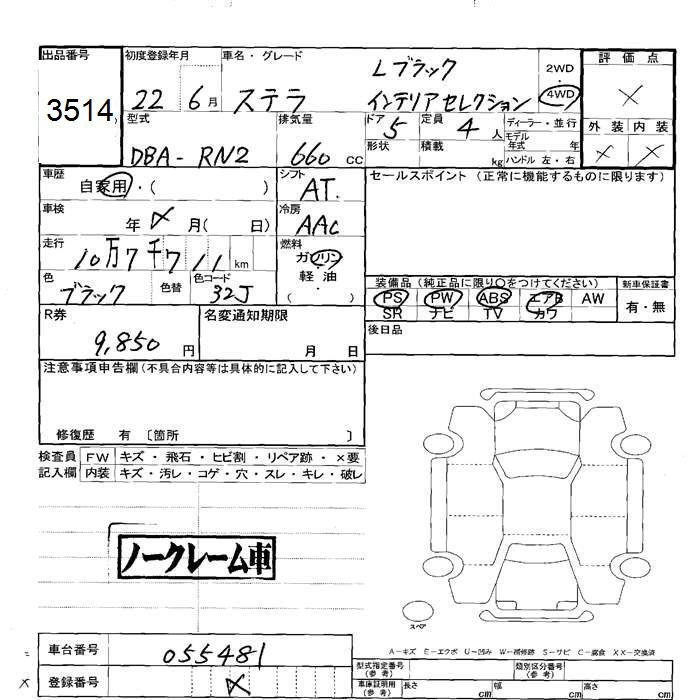 出品番号 初度登録年月 車名・グレード 評価点
3514 22 6月 ステラ Lブラック インテリアセレクション 2WD・4WD ×
型式 排気量 ドア 定員 ディーラー・並行 外装 内装
DBA-RN2 660 CC 5 4人 モデル年式 年 × ×
形状 積載 kg ハンドル 左・右
車歴 シフト セールスポイント (正常に機能するものに限ります)
自家用・( ) AT
車検 冷房
年 月( 日) AAC
走行 燃料
10万7千711km ガソリン・軽油
色 色替 色コード ( )
ブラック 32J
装備品(純正品に限り○をつけてください) 新車保証書
PS PW ABS エアB AW 有・無
SR ナビ TV カワ
R券 名変通知期限 後日品
9,850円 月 日
注意事項申告欄(不具合内容等は具体的に記入して下さい)
修復歴 有 〔箇所 〕
検査員 FW キズ・飛石・ヒビ割・リペア跡・×要
記入欄 内装 キズ・汚レ・コゲ・穴・スレ・キレ・破レ
ノークレーム車
スペア
A-キズ E-エクボ U-凹み W-補修跡 S-サビ C-腐食 XX-交換済
車台番号 055481
型式指定番号(参考) 類別区分番号(参考)
× 登録番号 ×
車庫証明用(参考) 長さ cm 幅 cm 高さ cm